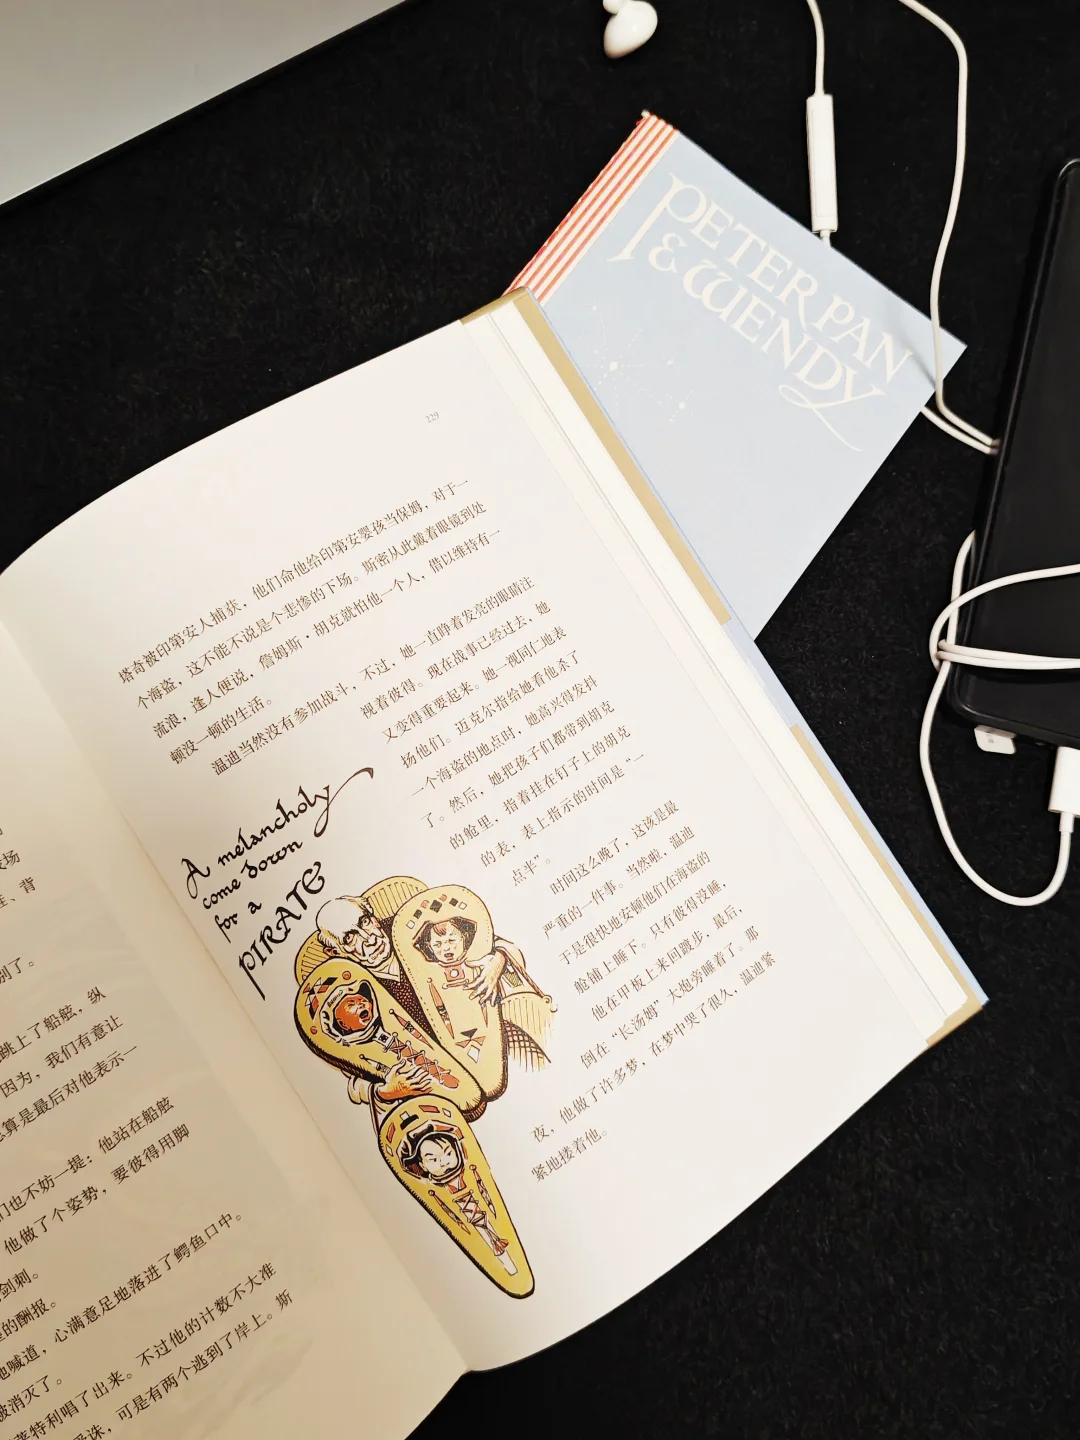 PETER PAN
& WENDY
229
塔奇被印第安人捕获，他们命他给印第安婴孩当保姆，对于一
个海盗，这不能不说是个悲惨的下场。斯密从此戴着眼镜到处
流浪，逢人便说，詹姆斯·胡克就怕他一个人，借以维持有一
顿没一顿的生活。
温迪当然没有参加战斗，不过，她一直睁着发亮的眼睛注
视着彼得。现在战事已经过去，她
又变得重要起来。她一视同仁地表
扬他们。迈克尔指给她看他杀了
一个海盗的地点时，她高兴得发抖
了。然后，她把孩子们都带到胡克
的舱里，指着挂在钉子上的胡克
的表，表上指示的时间是“一
点半”。
时间这么晚了，这该是最
严重的一件事。当然啦，温迪
于是很快地安顿他们在海盗的
舱铺上睡下。只有彼得没睡，
他在甲板上来回踱步，最后，
倒在“长汤姆”大炮旁睡着了。那
夜，他做了许多梦，在梦中哭了很久，温迪紧
紧地搂着他。
A melancholy
come down
for a
PIRATE
、背
别了。
跳上了船舷，纵
因为，我们有意让
算是最后对他表示一
们也不妨一提：他站在船舷
他做了个姿势，要彼得用脚
剑刺。
的酬报。
地喊道，心满意足地落进了鳄鱼口中。
被消灭了。
莱特利唱了出来。不过他的计数不大准
诛，可是有两个逃到了岸上。斯